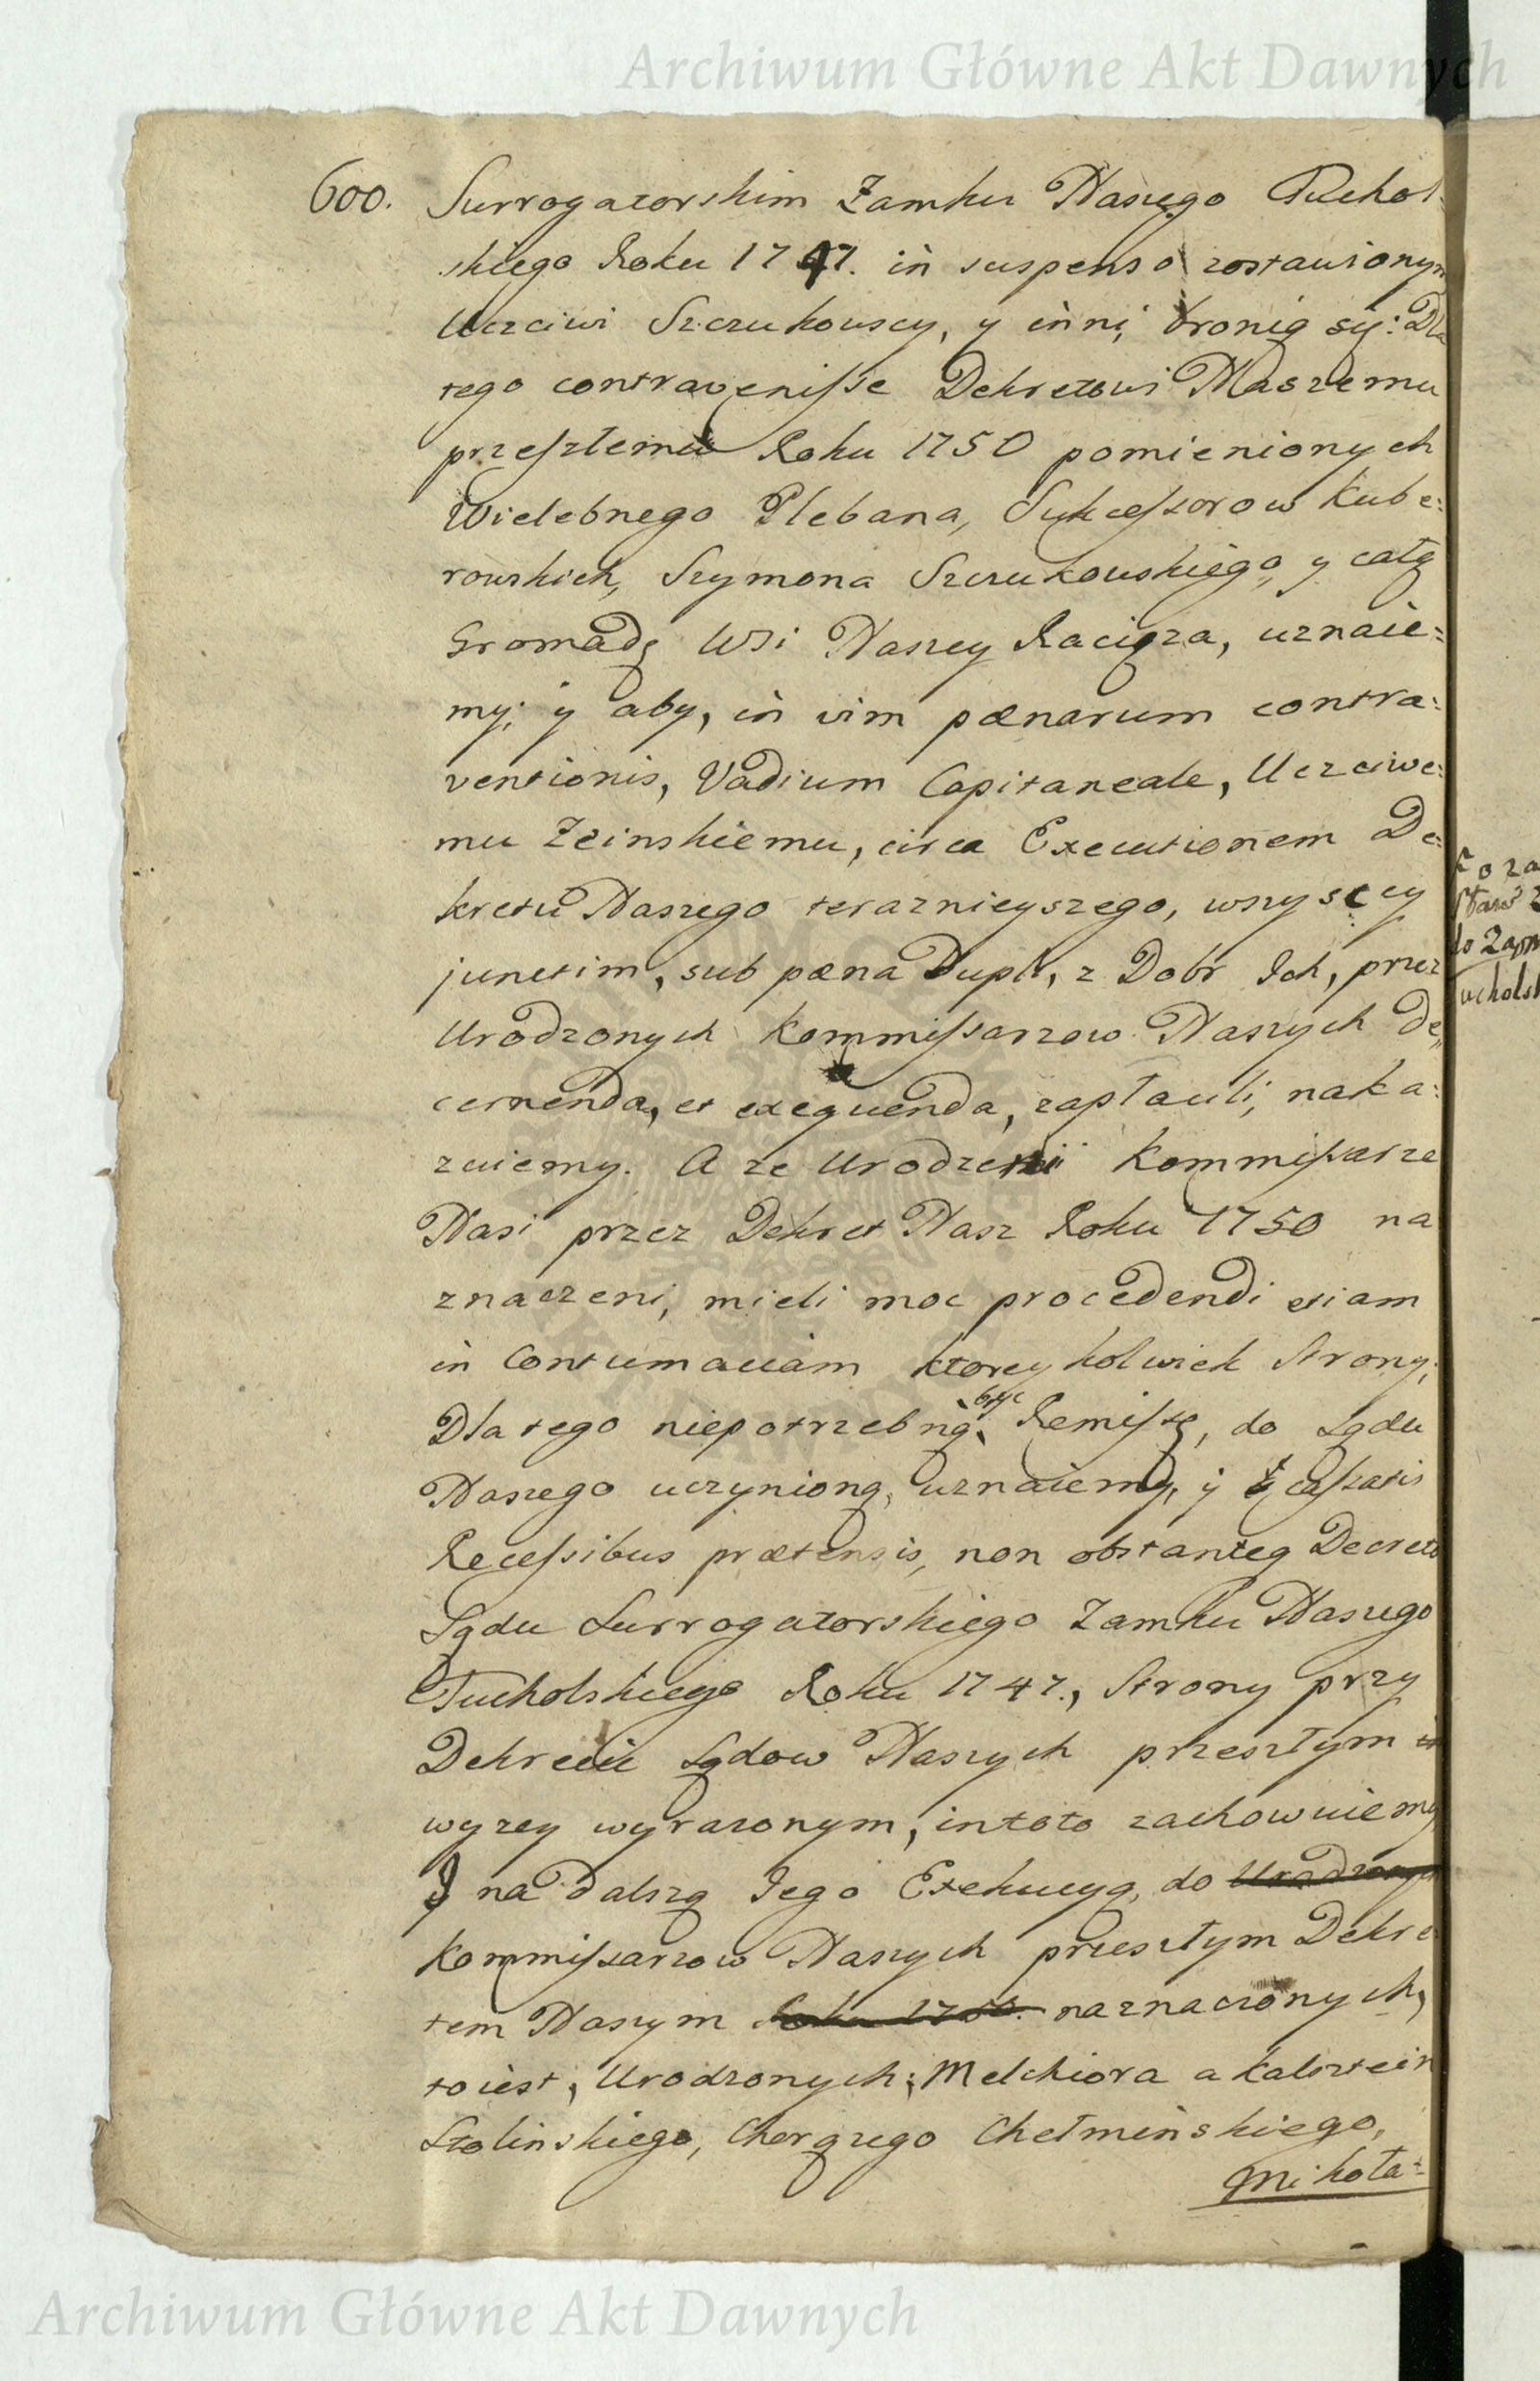 Archiwum Główne Akt Dawnych
600.
Surrogatorskim Zamku Naszego Tuchol:
skiego Roku 1747. in suspenso zostawionym
Uczciwi Szczukowscy, y inni, bronią się: Dla
tego contravenisse Dekretowi Naszemu
przeszłemu Roku 1750 pomienionych
Wielebnego Plebana, Sukcessorow Kube:
rowskich, Szymona Szczukowskiego, y całą
Gromadę Wsi Naszey Raciąza, uznaie:
my; y aby, in vim pœnarum contra:
ventionis, Vadium Capitaneale, Uczciwe:
mu Zeinskiemu, circa Executionem De:
kretu Naszego teraznieyszego, wszyscy
junctim, sub pœna Dupli, z Dobr Ich, przez
Urodzonych Kommissarzow Naszych De„
cernenda, et exequenda, zapłacili, naka:
zuiemy. A ze Urodzeni Kommissarze
Nasi przez Dekret Nasz Roku 1750 na
znaczeni, mieli moc procedendi etiam
in Contumaciam ktoreykolwiek Strony;
Dla tego niepotrzebną być Remissę, do Sądu
Naszego uczynioną, uznaiemy, y cassatis
Recessibus prætensis, non obstanteq Decreto
Sądu Surrogatorskiego Zamku Naszego
Tucholskiego Roku 1747., Strony przy
Dekrecie Sądow Naszych przeszłym
wyzey wyrazonym, in toto zachowuiemy
I na dalszą Iego Exekucyą, do Urodzonych
Kommissarzow Naszych przeszłym Dekre
tem Naszym Roku 1750. naznaczonych,
toiest, Urodzonych; Melchiora a Kalsztein
Stolinskiego, Chorązego Chełmińskiego,
Mikoła:
do Zam
ucholsk
Archiwum Główne Akt Dawnych